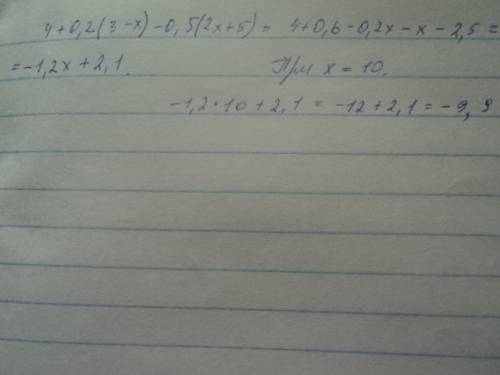 4+0,2(3-x)-0,5(2x+5)= 4+0,6-0,2x-x-2,5=
=-1,2x+2,1. При x=10.
-1,2·10+2,1=-12+2,1=-9,9